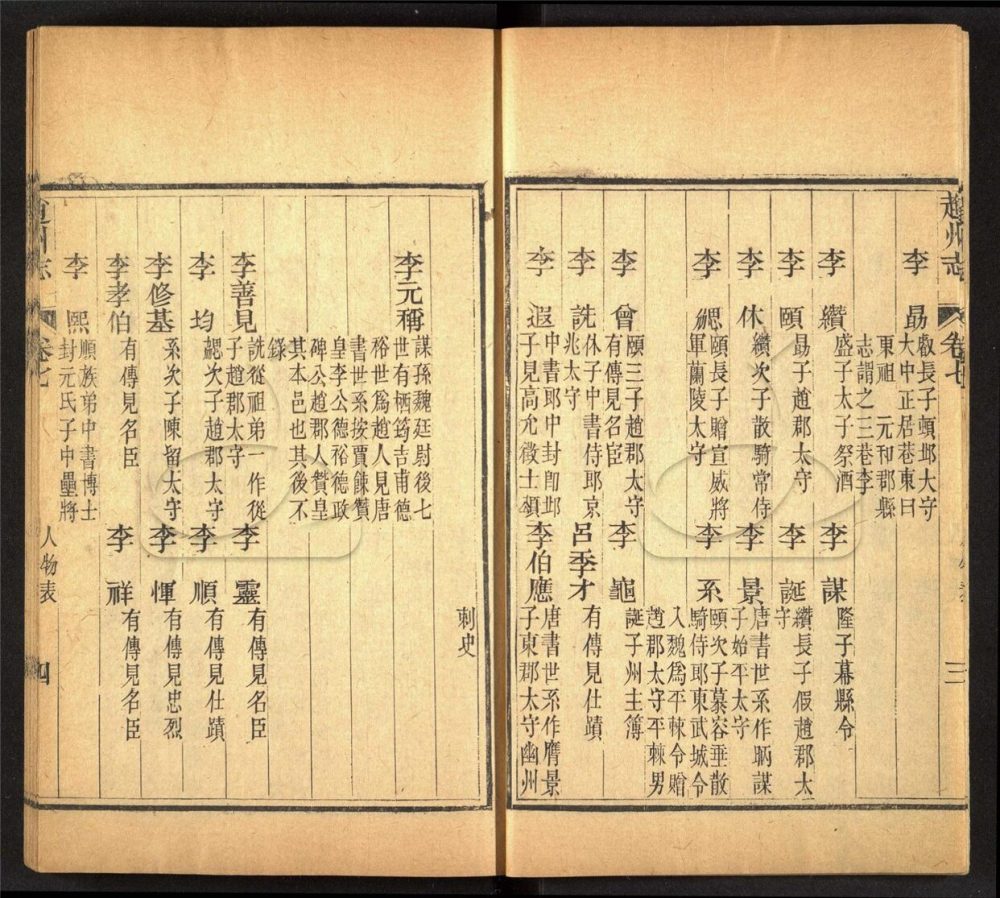 趙州志
卷七
三
李勗
叡長子頓邱太守
大中正居巷東曰
東祖 元和郡縣
志謂之三巷李
李纘
盛子太子祭酒
李謀
隆子幕縣令
李頤
勗子趙郡太守
李誕
纘長子假趙郡太
守
李休
纘次子散騎常侍
李景
唐書世系作昞謀
子始平太守
李勰
頤長子贈宣威將
軍蘭陵太守
李系
頤次子慕容垂散
騎侍郎東武城令
入魏爲平棘令贈
趙郡太守平棘男
李曾
頤三子趙郡太守
有傳見名臣
李龜
誕子州主簿
李詵
休子中書侍郎京
兆太守
呂季才
有傳見仕蹟
李遐
中書郎中封卽邺
子見高允徵士頌
李伯應
唐書世系作膺景
子東郡太守幽州
刺史
李元稱
謀孫魏廷尉後七
世有栖筠吉甫德
裕世爲趙人見唐
書世系按賈餗贊
皇李公德裕德政
碑公趙郡人贊皇
其本邑也其後不
錄
李善見
詵從祖弟一作從
子趙郡太守
李靈
有傳見名臣
李均
勰次子趙郡太守
李順
有傳見仕蹟
李修基
系次子陳留太守
李惲
有傳見忠烈
李孝伯
有傳見名臣
李祥
有傳見名臣
李熙
順族弟中書博士
封元氏子中壘將
趙州志
卷七
人物表
四